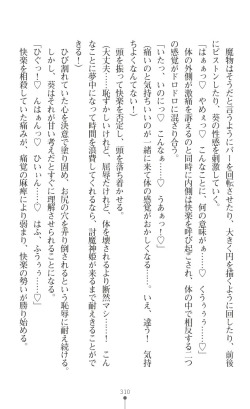 魔物はそうだと言うようにバーを回転させたり、大きく円を描くように回したり、前後
にピストンしたり、葵の性感を刺激していく。
「はぁぁっ♡　やめぇっ♡　こんなことに、何の意味がぁっ……♡　くうぅぅぅっ♡」
体の外側が激痛を訴えるのと同時に内側は快楽を呼び起こされ、体の中で相反する二つ
の感覚がドロドロに混ざり合う。
「いたっ、いのにっ♡　こんなぁっ……♡　うあぁっ！♡」
（痛いのと気持ちいいのが一緒に来て体の感覚がおかしくなる……。いえ、違う！　気持
ちよくなんてない！）
頭を振って快楽を否定し、頭を落ち着かせる。
（大丈夫……恥ずかしいけれど、屈辱だけれど、体を壊されるより断然マシ……！　こん
なことに夢中になって時間を浪費してくれるなら、討魔神姫が耐えきることができ
きる！）
ひび割れていた心を決意で塗り固め、お尻の穴を弄り回されるという恥辱に耐え続ける。
しかし、葵はそれが甘い考えだとすぐに理解させられることになる。
「ひぐっ！♡　んはぁんっ♡　ひぃぃん……♡　はふ、ふうぅぅ……♡」
快楽を相殺していた痛みが、痛覚の麻痺により弱まり、快楽の勢いが勝ち
310